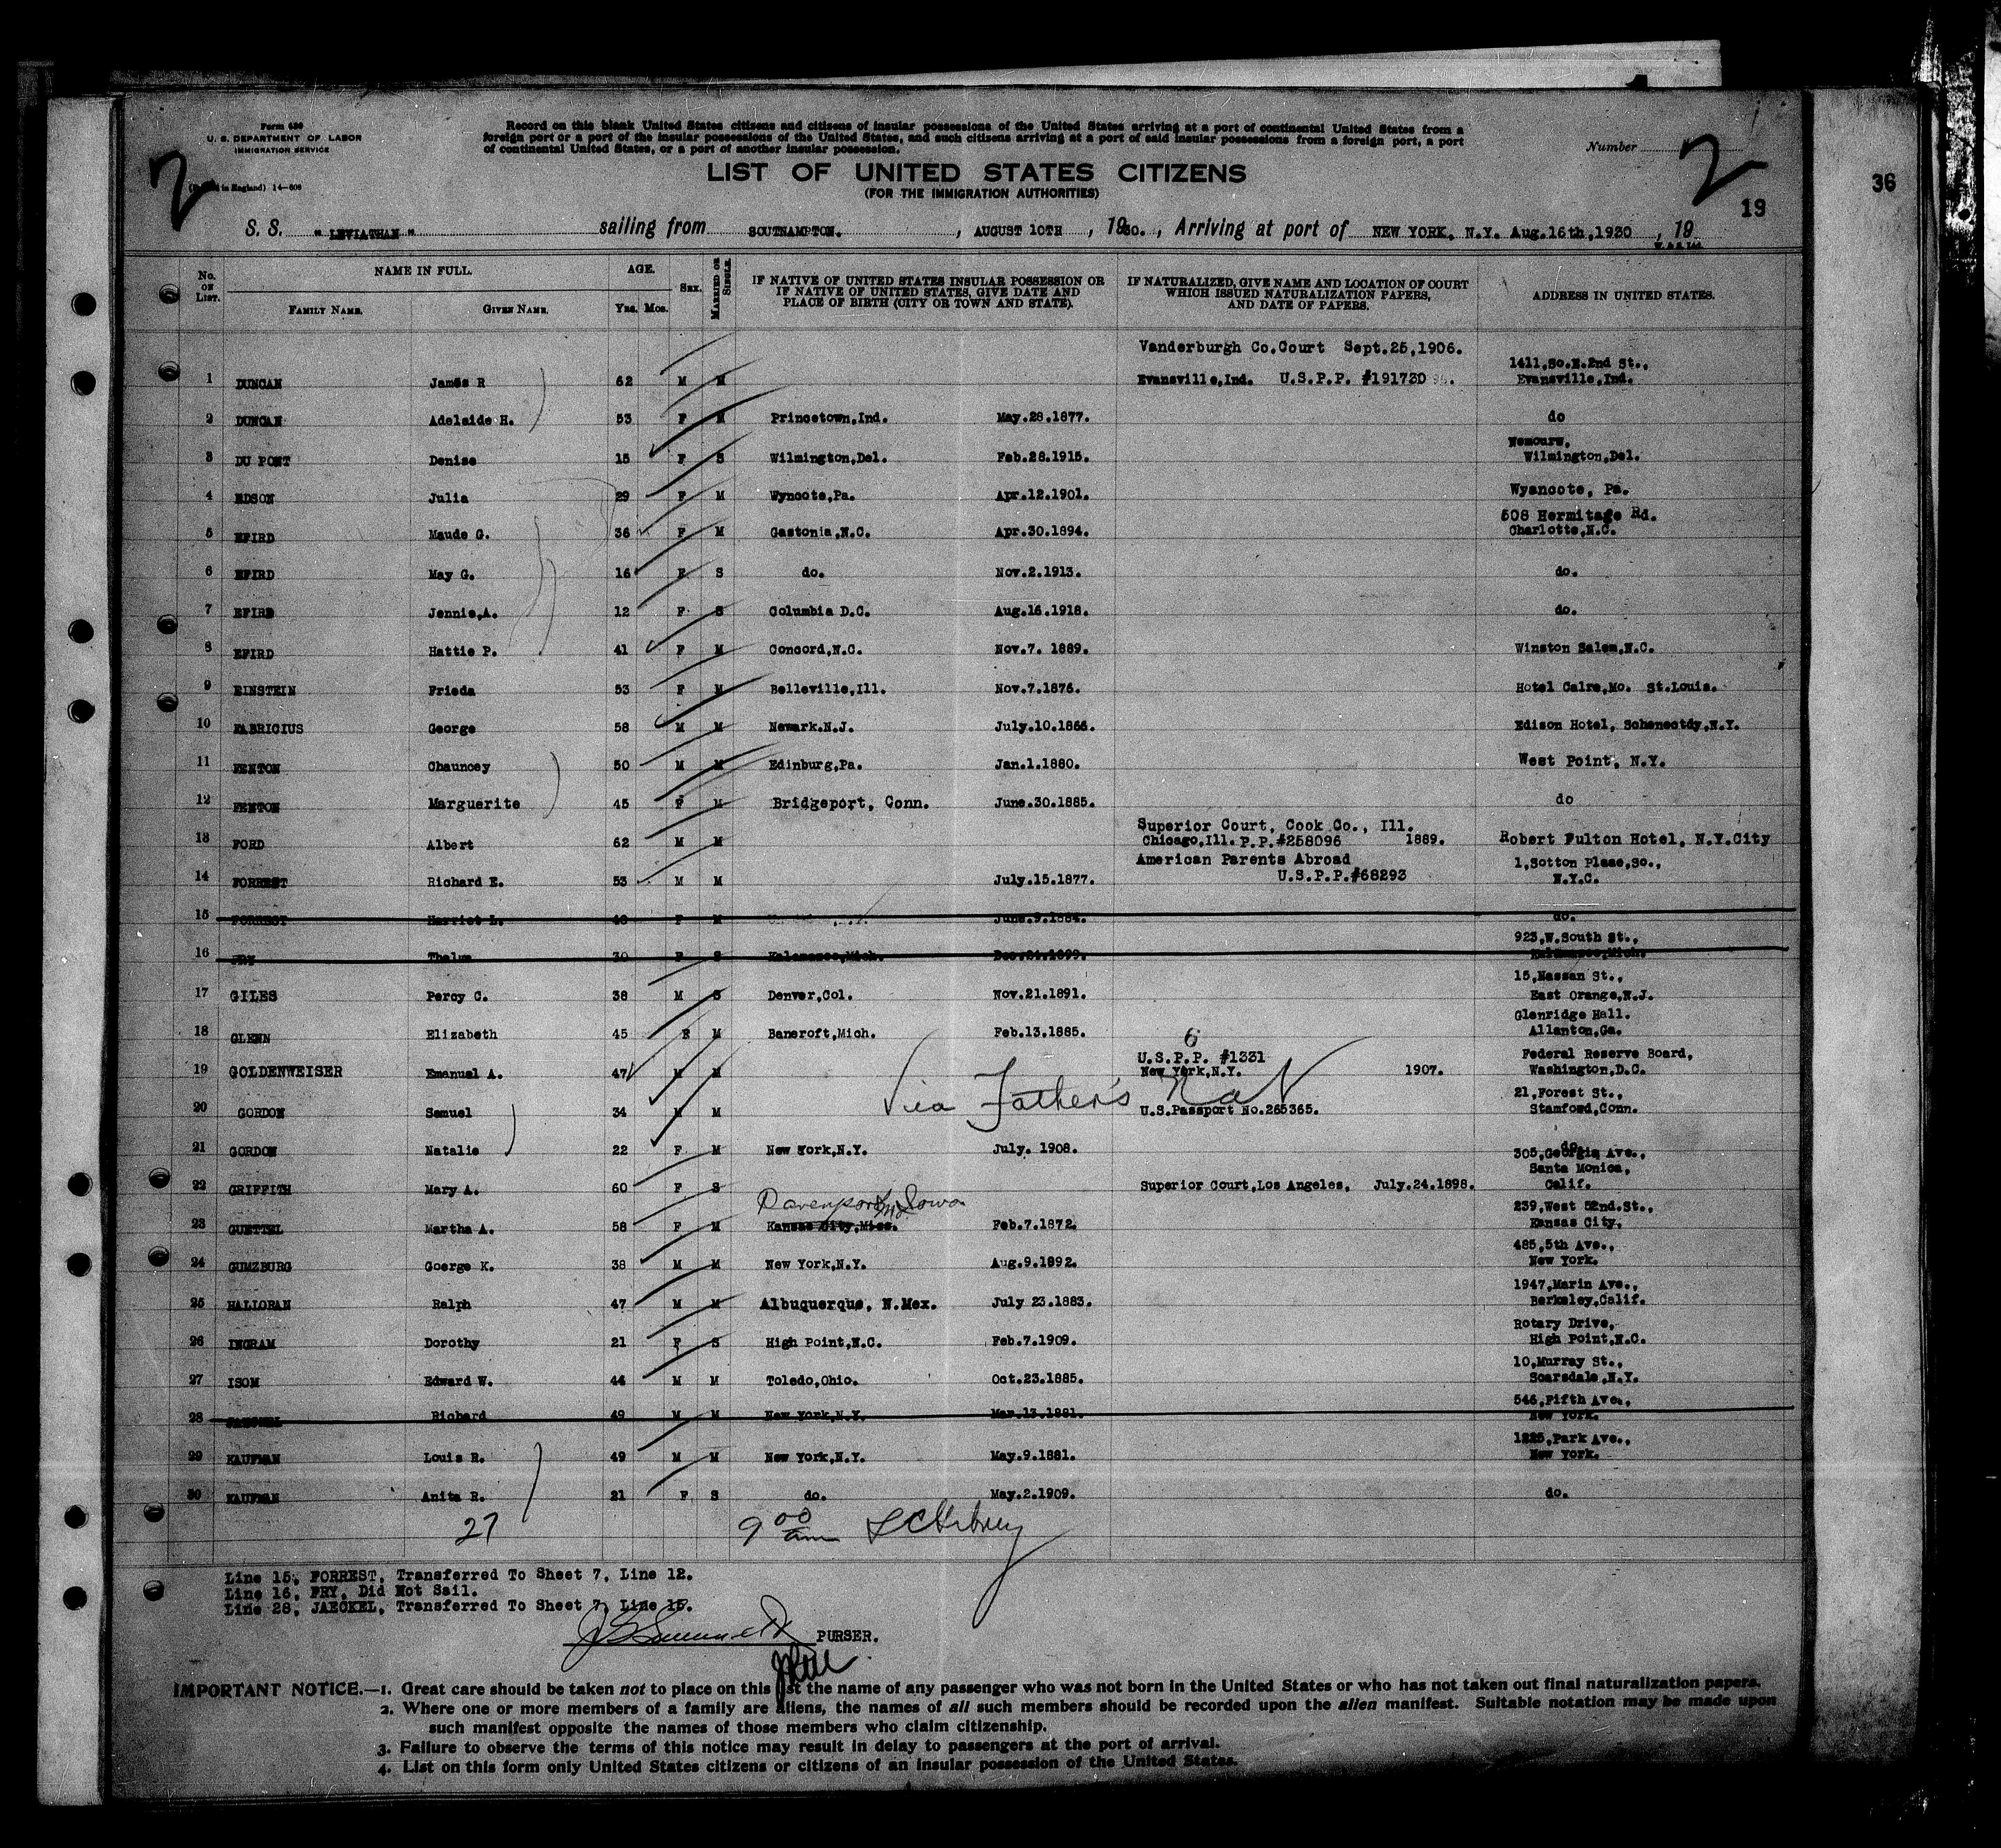 Form 630
U. S. DEPARTMENT OF LABOR
IMMIGRATION SERVICE
in England) 14—608
Record on this blank United States citizens and citizens of insular possessions of the United States arriving at a port of continental United States from a
foreign port or a part of the insular possessions of the United States, and such citizens arriving at a port of said insular possessions from a foreign port, a port
of continental United States, or a port of another insular possession.
Number
2
2
LIST OF UNITED STATES CITIZENS
(FOR THE IMMIGRATION AUTHORITIES)
36
19
S. S. "LEVIATHAN" sailing from SOUTHAMPTON. , AUGUST 10TH , 1930. , Arriving at port of NEW YORK, N.Y. Aug.16th,1930 , 19
No. ON LIST. NAME IN FULL. AGE. SEX. MARRIED OR SINGLE. IF NATIVE OF UNITED STATES INSULAR POSSESSION OR IF NATIVE OF UNITED STATES, GIVE DATE AND PLACE OF BIRTH (CITY OR TOWN AND STATE). IF NATURALIZED, GIVE NAME AND LOCATION OF COURT WHICH ISSUED NATURALIZATION PAPERS, AND DATE OF PAPERS. ADDRESS IN UNITED STATES.
FAMILY NAME. GIVEN NAME. YRS. MOS.
Vanderburgh Co.Court Sept.25,1906. 1411,So.E.2nd St.,
1 DUNCAN James R 62 M M Evansville,Ind. U.S.P.P. #191730 Evansville,Ind.
2 DUNCAN Adelaide H. 53 F M Princetown,Ind. May.28.1877. do
Nemours,
3 DU PONT Denise 15 F S Wilmington,Del. Feb.28.1915. Wilmington,Del.
4 EDSON Julia 29 F M Wyncote,Pa. Apr.12.1901. Wyancote, Pa.
508 Hermitage Rd.
5 EFIRD Maude G. 36 F M Gastonia,N.C. Apr.30.1894. Charlotte,N.C.
6 EFIRD May G. 16 F S do. Nov.2.1913. do.
7 EFIRD Jennie,A. 12 F S Columbia D.C. Aug.16.1918. do.
8 EFIRD Hattie P. 41 F M Concord,N.C. Nov.7. 1889. Winston Salem,N.C.
9 EINSTEIN Frieda 53 F M Belleville,Ill. Nov.7.1876. Hotel Calre,Mo. St.Louis.
10 FABRICIUS George 58 M M Newark.N.J. July.10.1866. Edison Hotel, Schenectdy,N.Y.
11 FENTON Chauncey 50 M M Edinburg,Pa. Jan.1.1880. West Point, N.Y.
12 FENTON Marguerite 45 F M Bridgeport, Conn. June.30.1885. do
Superior Court, Cook Co., Ill.
13 FORD Albert 62 M M Chicago,Ill. P.P.#258096 1889. Robert Fulton Hotel, N.Y.City
American Parents Abroad 1,Sotton Plase,So.,
14 FORREST Richard E. 53 M M July.15.1877. U.S.P.P.#68293 N.Y.C.
15 FORREST Harriet L. 46 F M June.9.1884. do.
923,W.South St.,
16 FRY Thelma 30 F S Kalamazoo,Mich. Dec.21.1899. Kalamazoo,Mich.
15,Nassan St.,
17 GILES Percy C. 38 M S Denver,Col. Nov.21.1891. East Orange,N.J.
Glenridge Hall.
18 GLENN Elizabeth 45 F M Bancroft,Mich. Feb.13.1885. Allanton,Ga.
6
U.S.P.P. #1331 Federal Reserve Board,
19 GOLDENWEISER Emanual A. 47 M M New York,N.Y. 1907. Washington,D.C.
Via Father's Nat
21,Forest St.,
20 GORDON Samuel 34 M M U.S.Passport No.265365. Stamford,Conn.
do
21 GORDON Natalie 22 F M New York,N.Y. July. 1908. 305,Georgia Ave.,
Santa Monica,
22 GRIFFITH Mary A. 60 F S Superior Court,Los Angeles, July.24.1898. Calif.
Davenport Iowa 239,West 52nd.St.,
23 GUETTEL Martha A. 58 F M Kansas City,Miss. Feb.7.1872. Kansas City,
485,5th Ave.,
24 GUMZBURG Goerge K. 38 M M New York,N.Y. Aug.9.1892. New York.
1947,Marin Ave.,
25 HALLORAN Ralph 47 M M Albuquerque, N.Mex. July 23.1883. Berkeley,Calif.
Rotary Drive,
26 INGRAM Dorothy 21 F S High Point,N.C. Feb.7.1909. High Point,N.C.
10,Murray St.,
27 ISOM Edward W. 44 M M Toledo,Ohio. Oct.23.1885. Scarsdale,N.Y.
546,Fifth Ave.,
28 JAECKEL Richard 49 M M New York,N.Y. Mar.13.1881. New York.
1225,Park Ave.,
29 KAUFMAN Louis R. 49 M M New York,N.Y. May.9.1881. New York.
30 KAUFMAN Anita R. 21 F S do. May.2.1909. do.
27 9 00 am
Line 15, FORREST, Transferred To Sheet 7, Line 12.
Line 16, FRY, Did Not Sail.
Line 28, JAECKEL, Transferred To Sheet 7, Line 15.
PURSER.
IMPORTANT NOTICE.—1. Great care should be taken not to place on this list the name of any passenger who was not born in the United States or who has not taken out final naturalization papers.
2. Where one or more members of a family are aliens, the names of all such members should be recorded upon the alien manifest. Suitable notation may be made upon
such manifest opposite the names of those members who claim citizenship.
3. Failure to observe the terms of this notice may result in delay to passengers at the port of arrival.
4. List on this form only United States citizens or citizens of an insular possession of the United States.